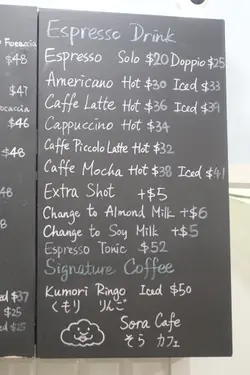 Focaccia
$48
$47
ocaccia
$46
$48
48
48
ed $37
$25
ed $25
Espresso Drink
Espresso Solo $20 Doppio $25
Americano Hot $30 Iced $33
Caffe Latte Hot $36 Iced $39
Cappuccino Hot $34
Caffe Piccolo Latte Hot $32
Caffe Mocha Hot $38 Iced $41
Extra Shot +$5
Change to Almond Milk +$6
Change to Soy Milk +$5
Espresso Tonic $52
Signature Coffee
Kumori Ringo Iced $50
くもり りんご
Sora Cafe
そら カフェ